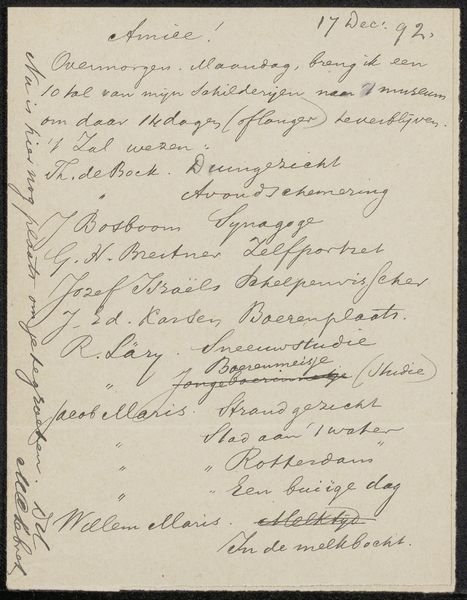 17 Dec. 92.
Amice!
Overmorgen. Maandag, breng ik een
10 tal van mijn Schilderijen naar 't museum
om daar 14 dagen (of langer) te verblijven.
't Zal wezen:
Th. de Bock. Duingezicht
" Avondschemering
J Bosboom Synagoge
G. H. Breitner Zelfportret
Jozef Israëls Schelpenvisscher
J. Ed. Karsen Boerenplaats.
R. Läry. Sneeuwstudie
Boerenmeisje
" (Studie)
Jacob Maris. Strandgezicht
" Stad aan 't water
" " Rotterdam "
" " Een buiige dag
Willem Maris. Melktijd
In de melkbocht.
Nu is hier nog plaats om je te groeten.